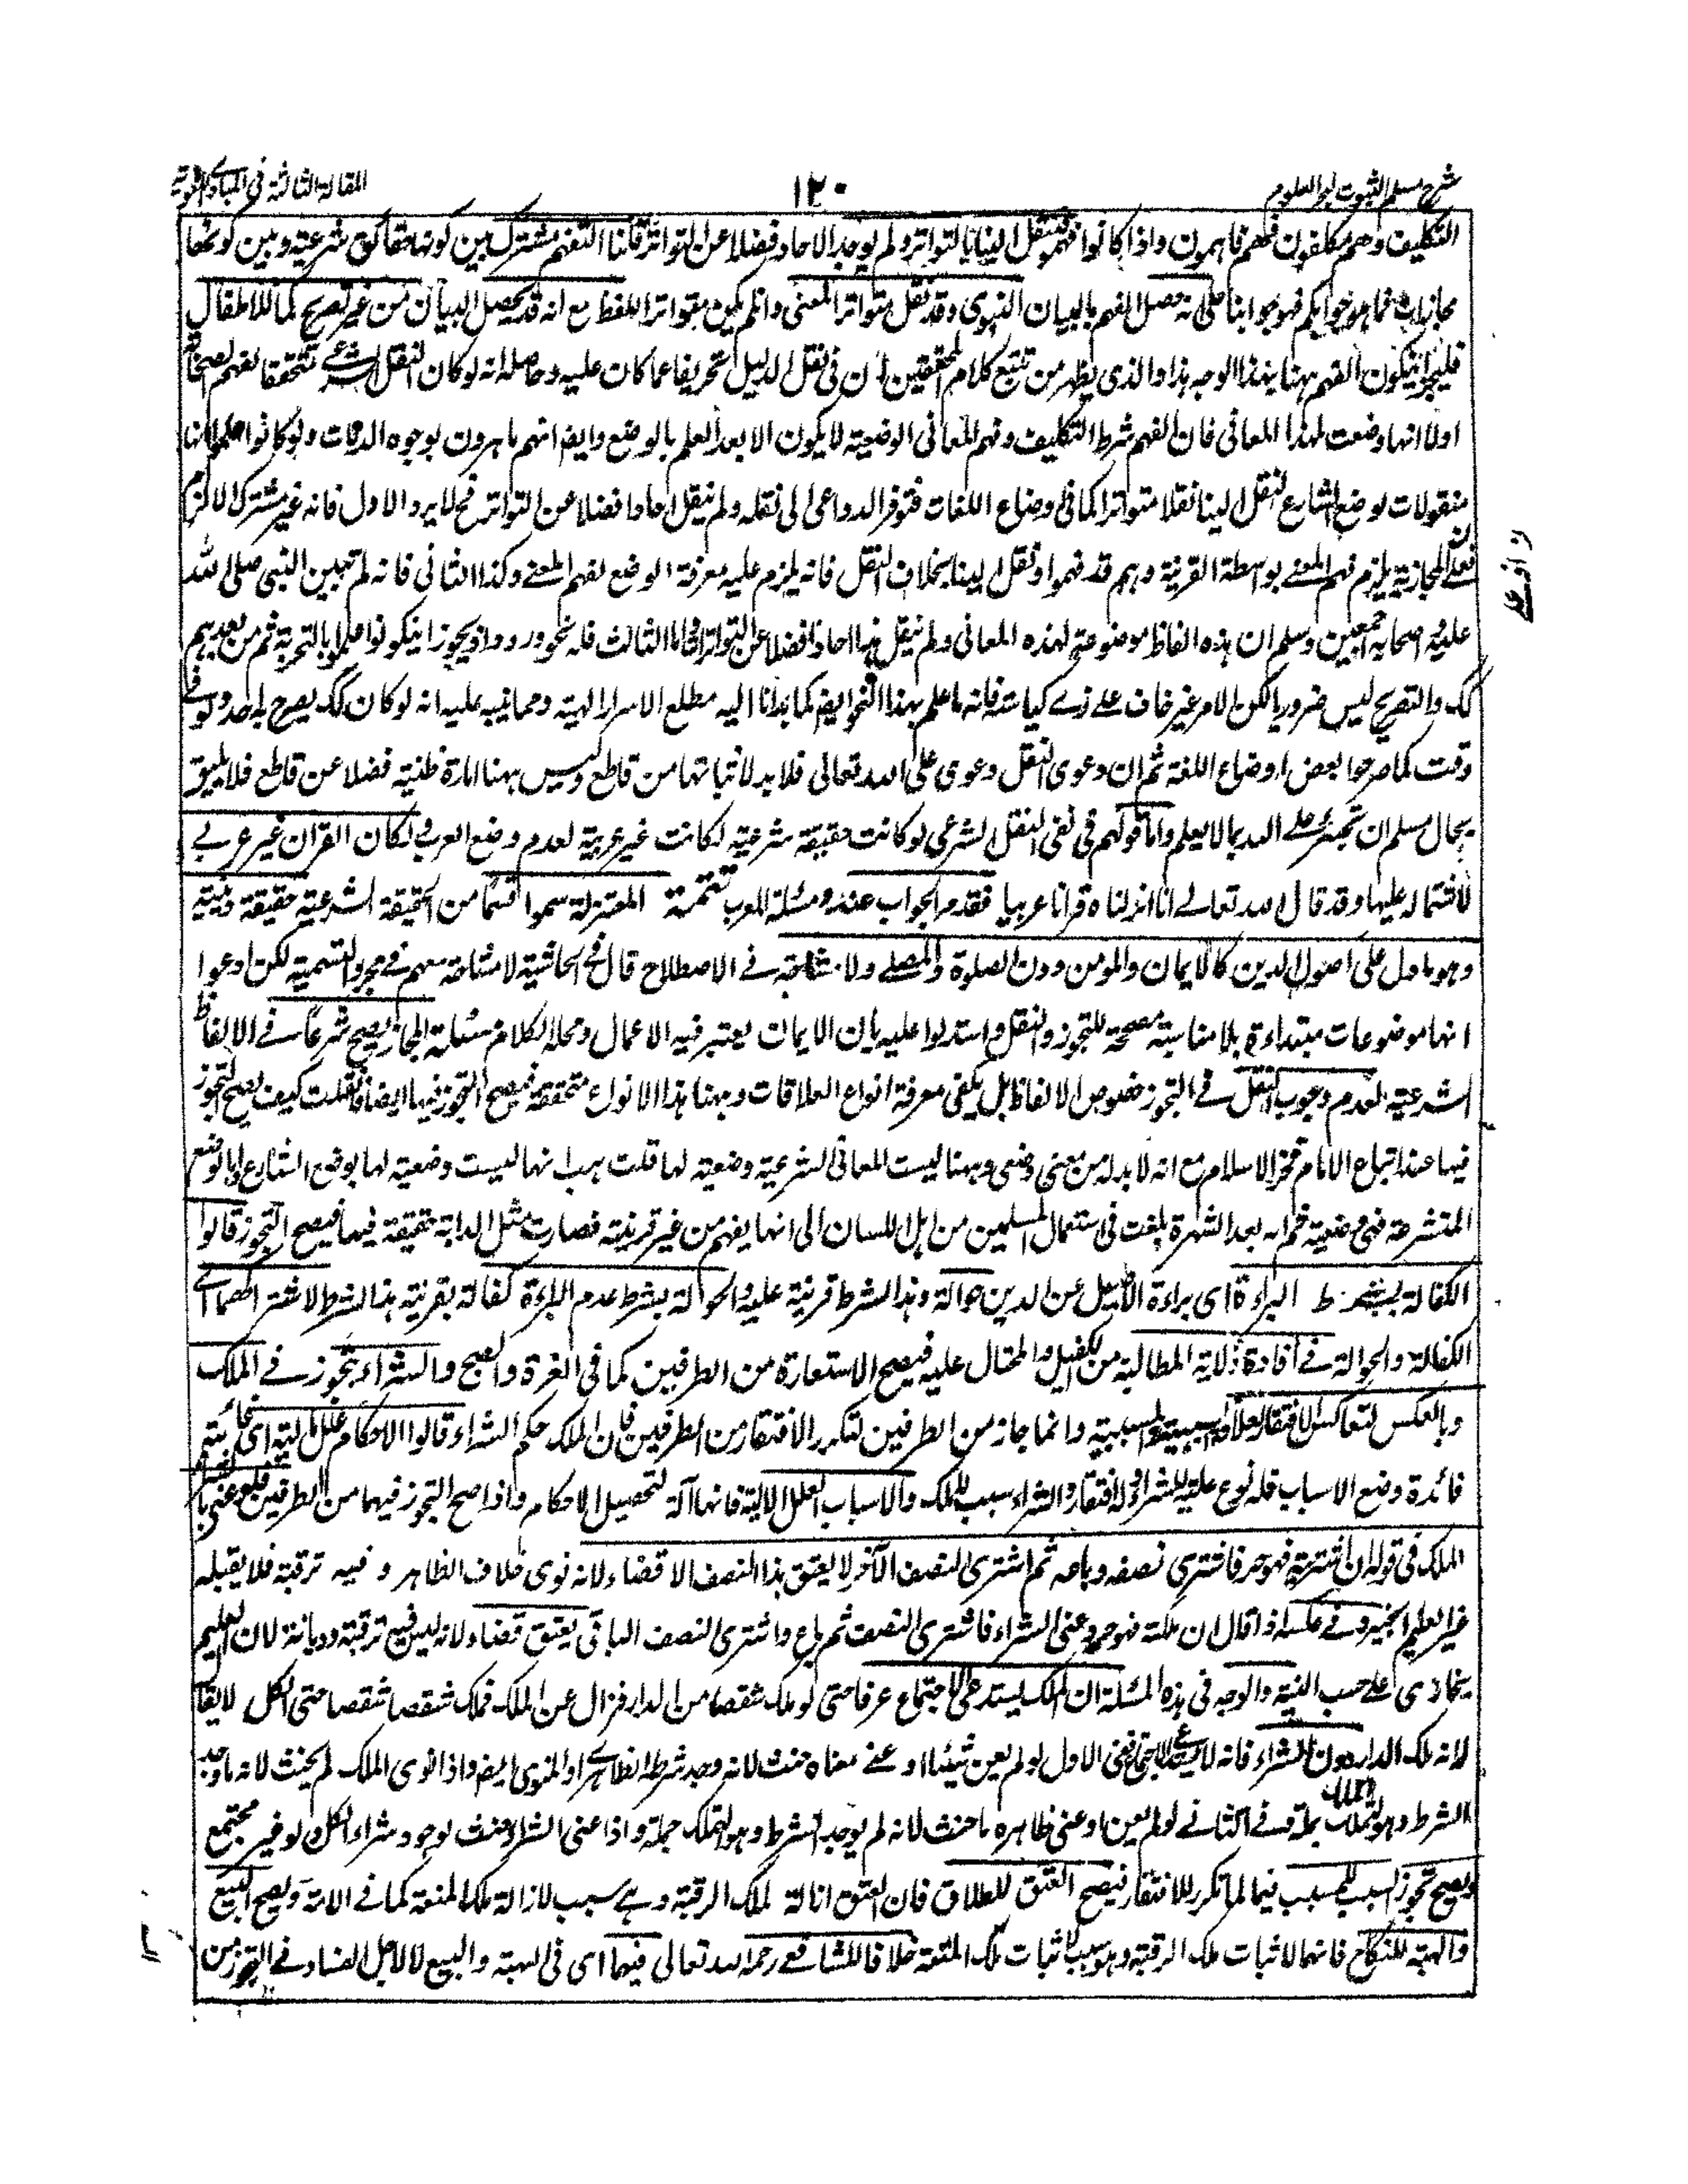 شرح مسلم الثبوت لبحر العلوم
١٢٠
المقالة الثالثة في المبادي اللغوية
التكليف وهم مكلفون فلهم فاهمون واذا كانوا فهموا فنقل الينا بالتواتر ولم يوجد الاحاد فضلا عن التواتر قلنا التفهم مشترك بين كونها حقائق شرعية وبين كونها
مجازات فما هو جوابكم فهو جوابنا على انه حصل الفهم بالبيان النبوي وقد نقل متواتر المعنى وان لم يكن متواتر اللفظ مع انه قد يحصل البيان من غير تصريح كما للاطفال
فليجز ان يكون الفهم ههنا بهذا الوجه هذا والذي يظهر من تتبع كلام المحققين ان في نقل الدليل تحريفا عما كان عليه وحاصله انه لو كان النقل الشرعي متحققا لفهم الصحابة
اولا انها وضعت لهذه المعاني فان الفهم شرط التكليف وفهم المعاني الوضعية لا يكون الا بعد العلم بالوضع وايضا انهم ماهرون بوجوه الدلالات ولو كانوا علموا انها
منقولات بوضع الشارع لنقل الينا نقلا متواترا كما في اوضاع اللغات فتوفر الدواعي الى نقله ولم ينقل احادا فضلا عن التواتر فح لا يرد الاول فانه غير مشترك الالزام
فعلى المجازية يلزم فهم المعنى بواسطة القرينة وهم قد فهموا ونقل الينا بخلاف النقل فانه يلزم عليه معرفة الوضع لفهم المعنى وكذا الثاني فانه لم يبين النبي صلى الله
عليه واصحابه اجمعين وسلم ان هذه الفاظ موضوعة لهذه المعاني ولم ينقل هذا احادا فضلا عن التواتر واما الثالث فله نحو ورود اذ يجوز ان يكونوا علموا بالتجربة ثم من بعدهم
كك والتصريح ليس ضروريا لكن الامر غير خاف على ذي كياسة فانه ما علم بهذا النحو ايضا كما هدانا اليه مطلع الاسرار الهية ومما ينبه عليه انه لو كان كك يصرح به احد ولو في
وقت كما صرحوا ببعض اوضاع اللغة ثم ان دعوى النقل دعوى على الله تعالى فلا بد لاثباتها من قاطع وليس ههنا امارة ظنية فضلا عن قاطع فلا يليق
بحال مسلم ان يجترئ على الله بما لا يعلم واما قولهم في نفي النقل الشرعي لو كانت حقيقة شرعية لكانت غير عربية لعدم وضع العرب لكان القران غير عربي
لاشتماله عليها وقد قال الله تعالى انا انزلناه قرانا عربيا فقد مر الجواب عنه في مسئلة المعرب تتمة المعتزلة سموا قسما من الحقيقة الشرعية حقيقة دينية
وهو ما دل على اصول الدين كالايمان والمومن دون الصلوة والمصلي ولا مشاحة في الاصطلاح قال في الحاشية لا مشاحة معهم في مجرد التسمية لكن ادعوا
انها موضوعات مبتداءة بلا مناسبة مصححة للتجوز والنقل واستدلوا عليه بان الايمان يعتبر فيه الاعمال ومحله الكلام مسئلة المجاز يصح شرعا في الالفاظ
الشرعية لعدم وجوب النقل في التجوز خصوص الالفاظ بل يكفي معرفة انواع العلاقات وههنا هذا الانواع متحققة فيصح التجوز فيها ايضا فان قلت كيف يصح التجوز
فيها عند اتباع الامام فخر الاسلام مع انه لا بد له من معنى وضعي وههنا ليست المعاني الشرعية وضعية لها قلت هب انها ليست وضعية لها بوضع الشارع اما بوضع
المتشرعة فهي وضعية ثم انه بعد الشهرة بلغت في استعمال المسلمين من اهل اللسان الى انها يفهم من غير قرينة فصارت مثل الدابة حقيقة فيها فيصح التجوز قالوا
الكفالة بشرط البراءة اي براءة الاصيل عن الدين حوالة وهذا الشرط قرينة عليه والحوالة بشرط عدم البراءة كفالة بقرينة هذا الشرط لاشتراكهما اي
الكفالة والحوالة في افادة ولاية المطالبة من الكفيل والمحتال عليه فيصح الاستعارة من الطرفين كما في الغرة والصبح والشراء يتجوز في الملك
وبالعكس لتعاكس الافتقار لعلاقة السببية والمسببية وانما جاز من الطرفين لتكرر الافتقار من الطرفين فان الملك حكم الشراء قالوا الاحكام علل مالية اي غائية
فائدة وضع الاسباب فله نوع علية للشراء والافتقار والشراء سبب للملك والاسباب العلل الالية فانها آلة لتحصيل الاحكام واذا صح التجوز فيهما من الطرفين فلو عنى بالشراء
الملك في قوله ان اشتريته فهو حر فاشترى نصفه وباعه ثم اشترى النصف الآخر لا يعتق هذا النصف الا قضاء لانه نوى خلاف الظاهر وفيه ترقبة فلا يقبله
غير العليم الخبير وفي عكسه اذا قال ان ملكته فهو حر وعنى الشراء فاشترى النصف ثم باع واشترى النصف الباقي يعتق قضاء لانه ليس فيه ترقبة وديانة لان العليم
يجازي على حسب النية والوجه في هذه المسئلة ان الملك يستدعي الاجتماع عرفا حتى لو ملك شقصا من الدار فزال عن الملك فملك شقصا شقصا حتى الكل لا يقال
لانه ملك الدار دون الشراء فانه لا يستدعي الاجتماع ففي الاول لو لم يعن شيئا او عنى معناه حنث لانه وجد شرطه الظاهر او المنوي ايضا واذا نوى الملك لم يحنث لانه ما وجد
الشرط وهو التملك جملة وفي الثاني لو لم يعن او عنى ظاهره ما حنث لانه لم يوجد الشرط وهو التملك جملة واذا عنى الشراء حنث لوجود شراء الكل ولو غير مجتمع
ويصح تجوز السبب للمسبب فيما لم يتكرر للافتقار فيصح العتق للطلاق فان العتق ازالة لملك الرقبة وهي سبب لازالة ملك المتعة كما في الامة ويصح البيع
والهبة للنكاح فانهما لاثبات ملك الرقبة وهو سبب لاثبات ملك المتعة خلافا للشافعي رحمه الله تعالى فيهما اي في الهبة والبيع لا لاجل الفساد في التجوز من